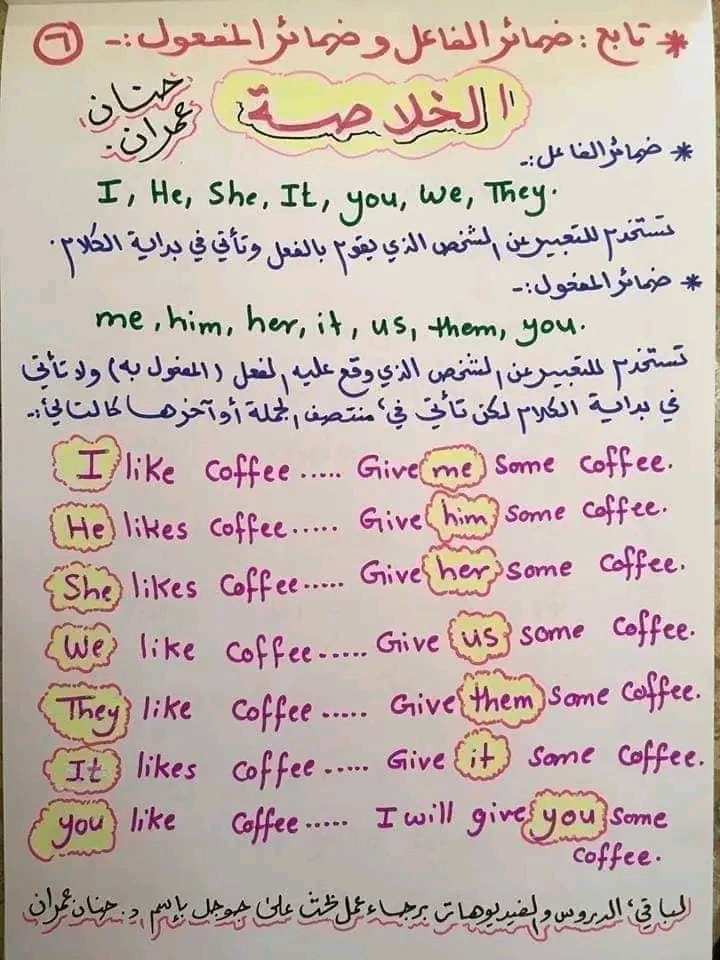 * تابع : ضمائر الفاعل و ضمائر المفعول :- ٦
الخلاصة
حنان
عمران
* ضمائر الفاعل :-
I, He, She, It, you, we, They.
تستخدم للتعبير عن الشخص الذي يقوم بالفعل وتأتي في بداية الكلام .
* ضمائر المفعول :-
me, him, her, it, us, them, you.
تستخدم للتعبير عن الشخص الذي وقع عليه الفعل (المفعول به) ولا تأتي
في بداية الكلام لكن تأتي في منتصف الجملة أو آخرها كالتالي :-
I like coffee ..... Give me some coffee.
He likes coffee ..... Give him some coffee.
She likes coffee ..... Give her some coffee.
We like coffee ..... Give us some coffee.
They like coffee ..... Give them some coffee.
It likes coffee ..... Give it some coffee.
you like coffee ..... I will give you some
coffee.
لباقي الدروس والفيديوهات برجاء عمل بحث على جوجل بإسم د. حنان عمران